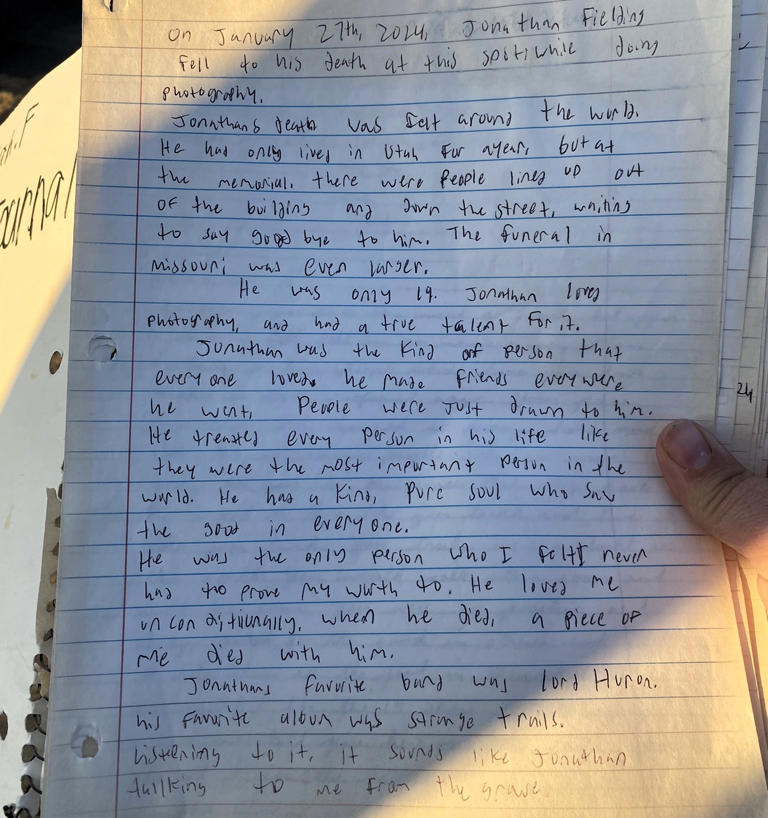 On January 27th, 2024, Jonathan Fielding
fell to his death at this spot, while doing
photography.
Jonathans death was felt around the world.
He had only lived in Utah for a year, but at
the memorial, there were people lined up out
of the building and down the street, waiting
to say good bye to him. The funeral in
Missouri was even larger.
He was only 19. Jonathan loved
photography, and had a true talent for it.
Jonathan was the kind of person that
every one loved. he made friends everywere
he went, People were just drawn to him.
He treated every person in his life like
they were the most important person in the
world. He had a kind, pure soul who saw
the good in every one.
He was the only person who I felt I never
had to prove my worth to. He loved me
unconditiunally, when he died, a piece of
me died with him.
Jonathans favorite band was lord Huron.
his favorite album was strange trails.
listening to it, it sounds like Jonathan
tallking to me from the grave.
24